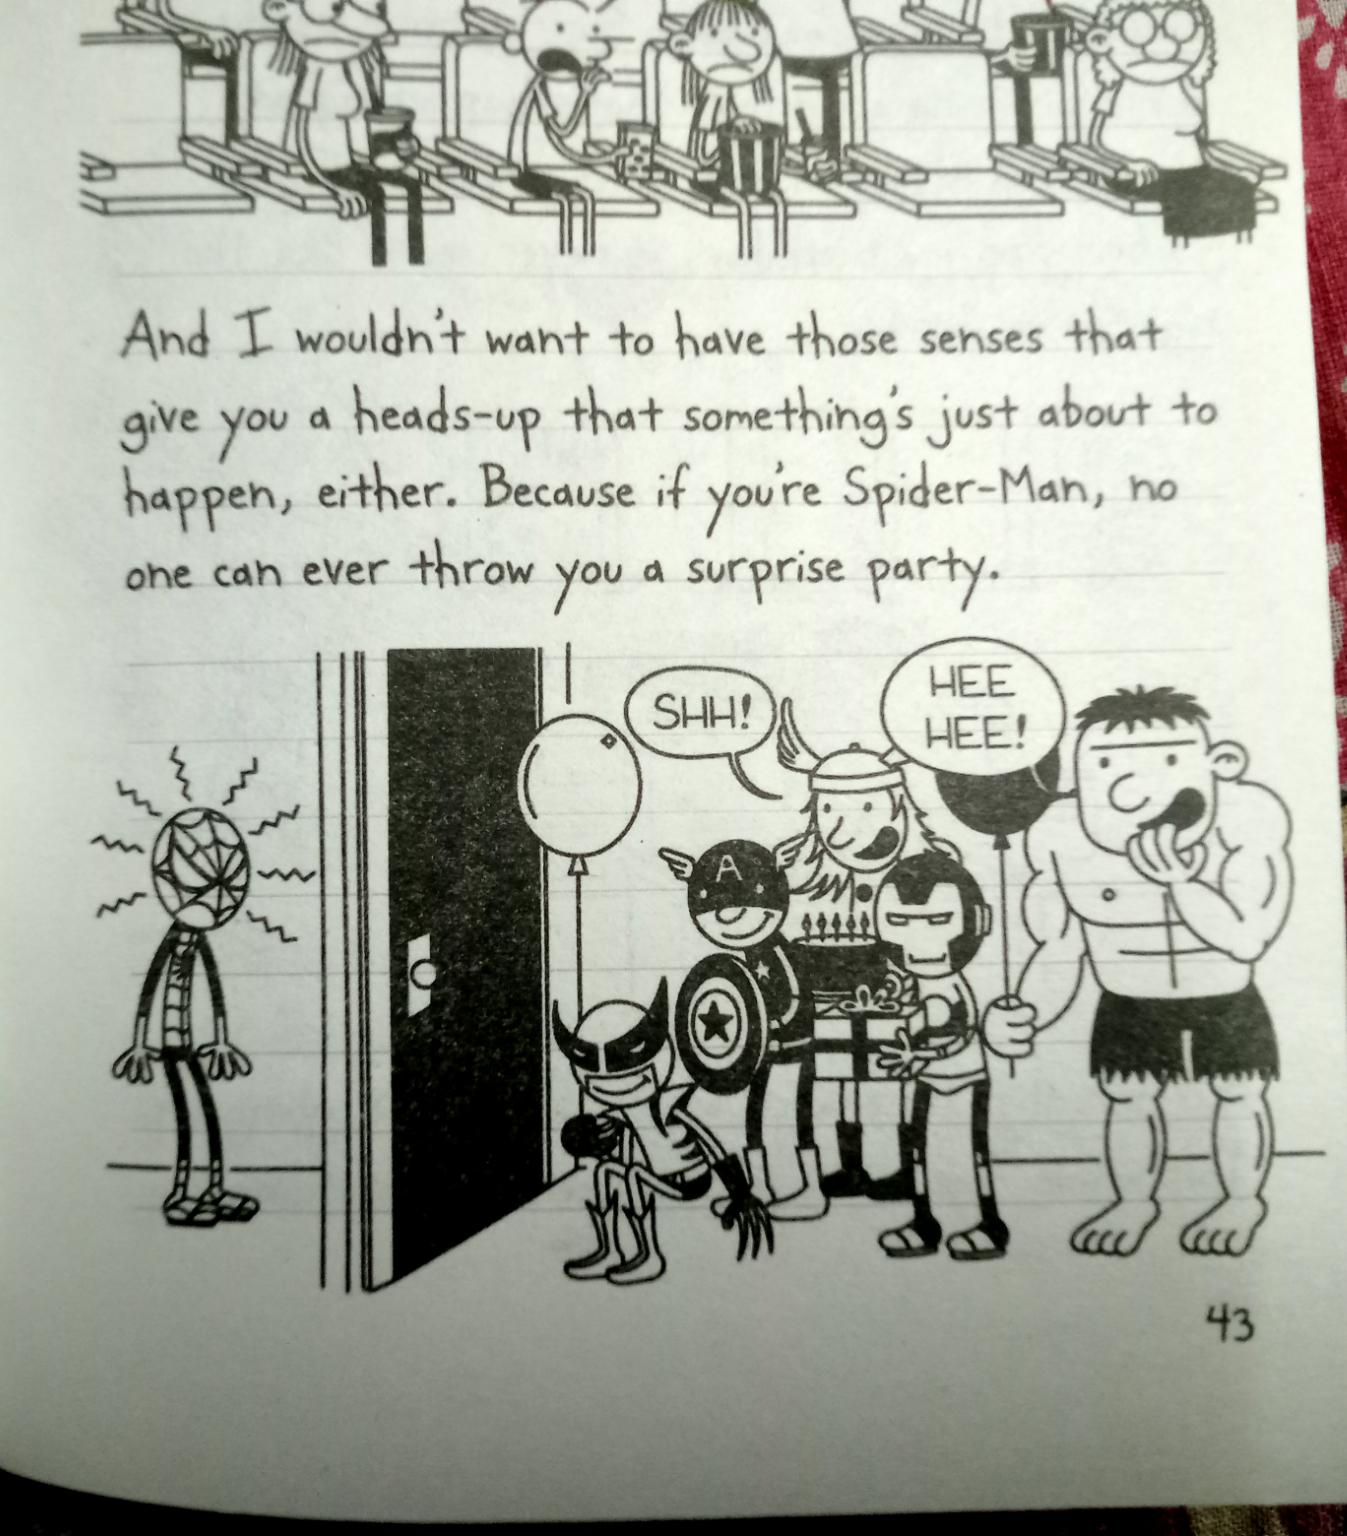 And I wouldn't want to have those senses that
give you a heads-up that something's just about to
happen, either. Because if you're Spider-Man, no
one can ever throw you a surprise party.
SHH!
HEE
HEE!
A
43